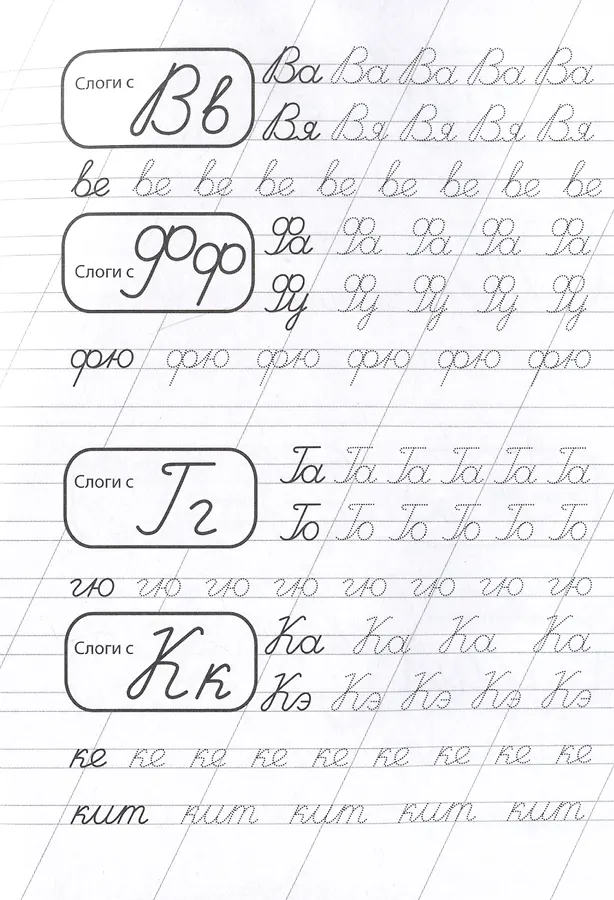 Слоги с Вв
Ва Ва Ва Ва Ва
Вя Вя Вя Вя Вя
ве ве ве ве ве ве ве ве ве
Слоги с Фф
Фа Фа Фа Фа Фа
Фу Фу Фу Фу Фу
фю фю фю фю фю фю
Слоги с Гг
Га Га Га Га Га Га
Го Го Го Го Го Го
гю гю гю гю гю гю гю гю
Слоги с Кк
Ка Ка Ка Ка
Кэ Кэ Кэ Кэ Кэ
ке ке ке ке ке ке ке ке ке
кит кит кит кит кит